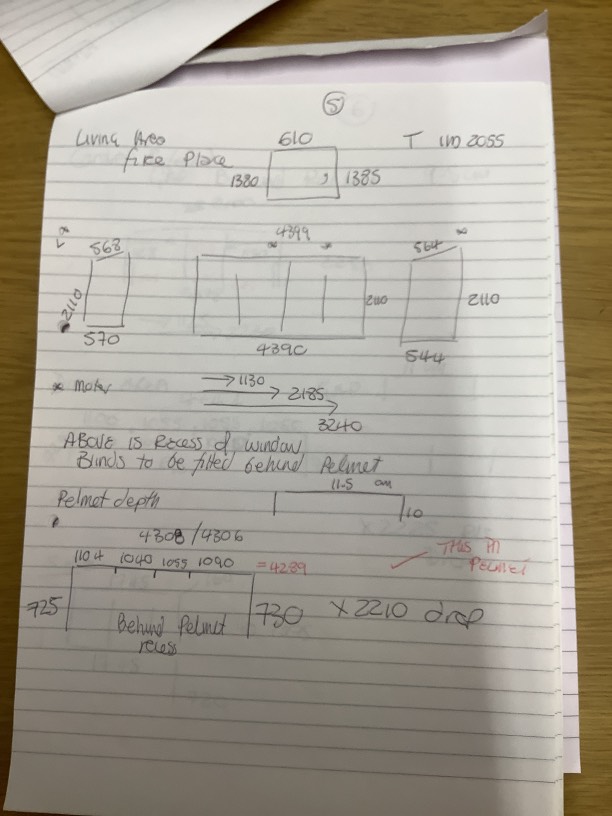 5
Living Area 610 T 1M 2055
fire Place 1380 1385
568 4399 564
2110 2110 2110
570 4390 544
* Motor →1130
→2185
3240
ABOVE IS Recess of window
Blinds to be fitted behind Pelmet
11.5 cm
Pelmet depth 10
4308/4306 This in
1104 1040 1055 1090 =4289 Pelmet
725 Behind Pelmet 730 x2210 drop
recess